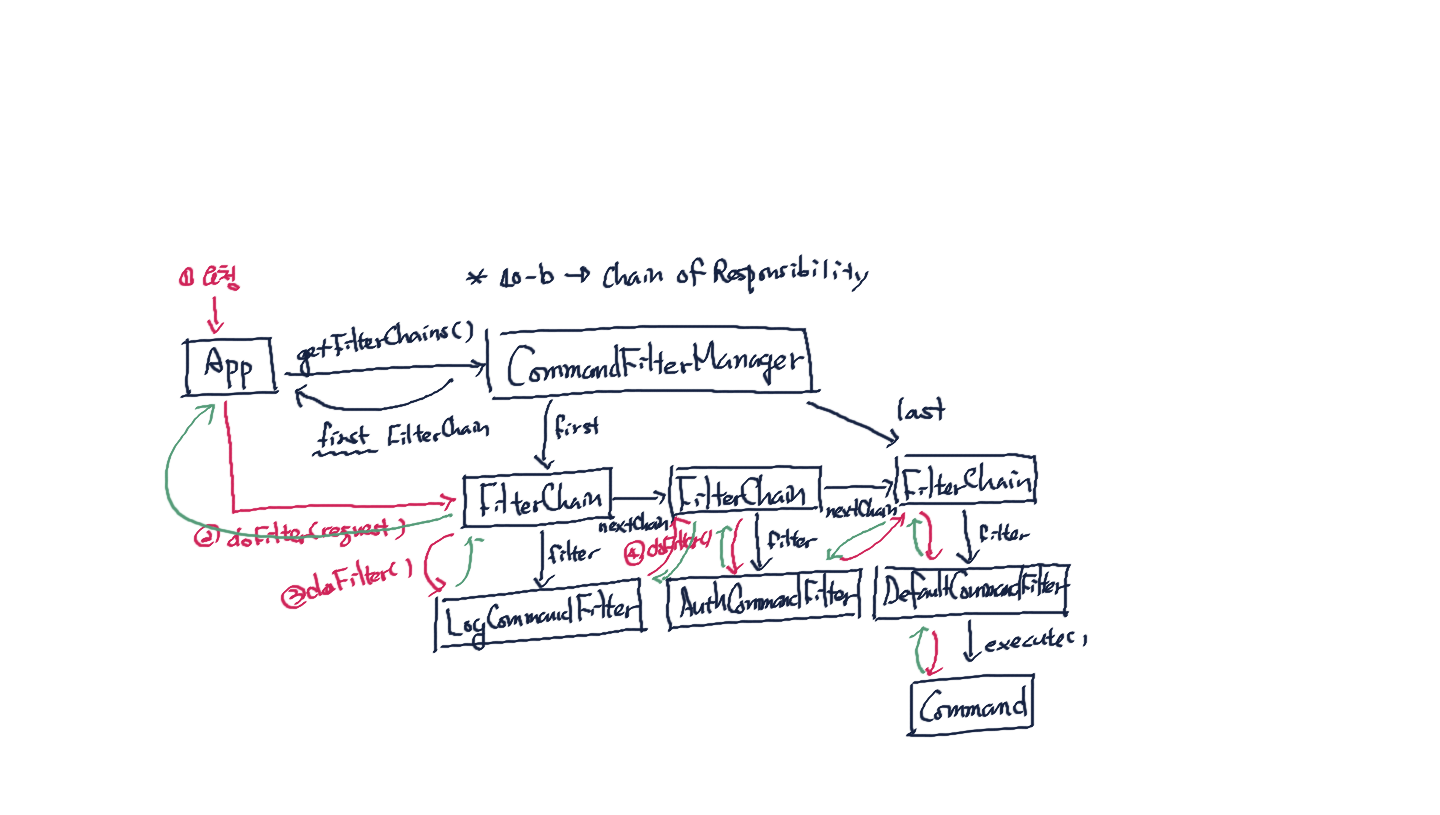 * 10-b → Chain of Responsibility
① 요청
App
getFilterChains()
CommandFilterManager
first FilterChain
first
last
FilterChain
nextChain
FilterChain
nextChain
FilterChain
② doFilter(request)
③ doFilter()
filter
④ doFilter()
filter
filter
LogCommandFilter
AuthCommandFilter
DefaultCommandFilter
execute()
Command